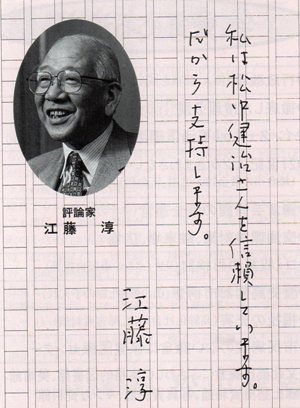 私は松中健治さんを信頼しています。
だから支持します。
江藤淳
評論家
江藤 淳